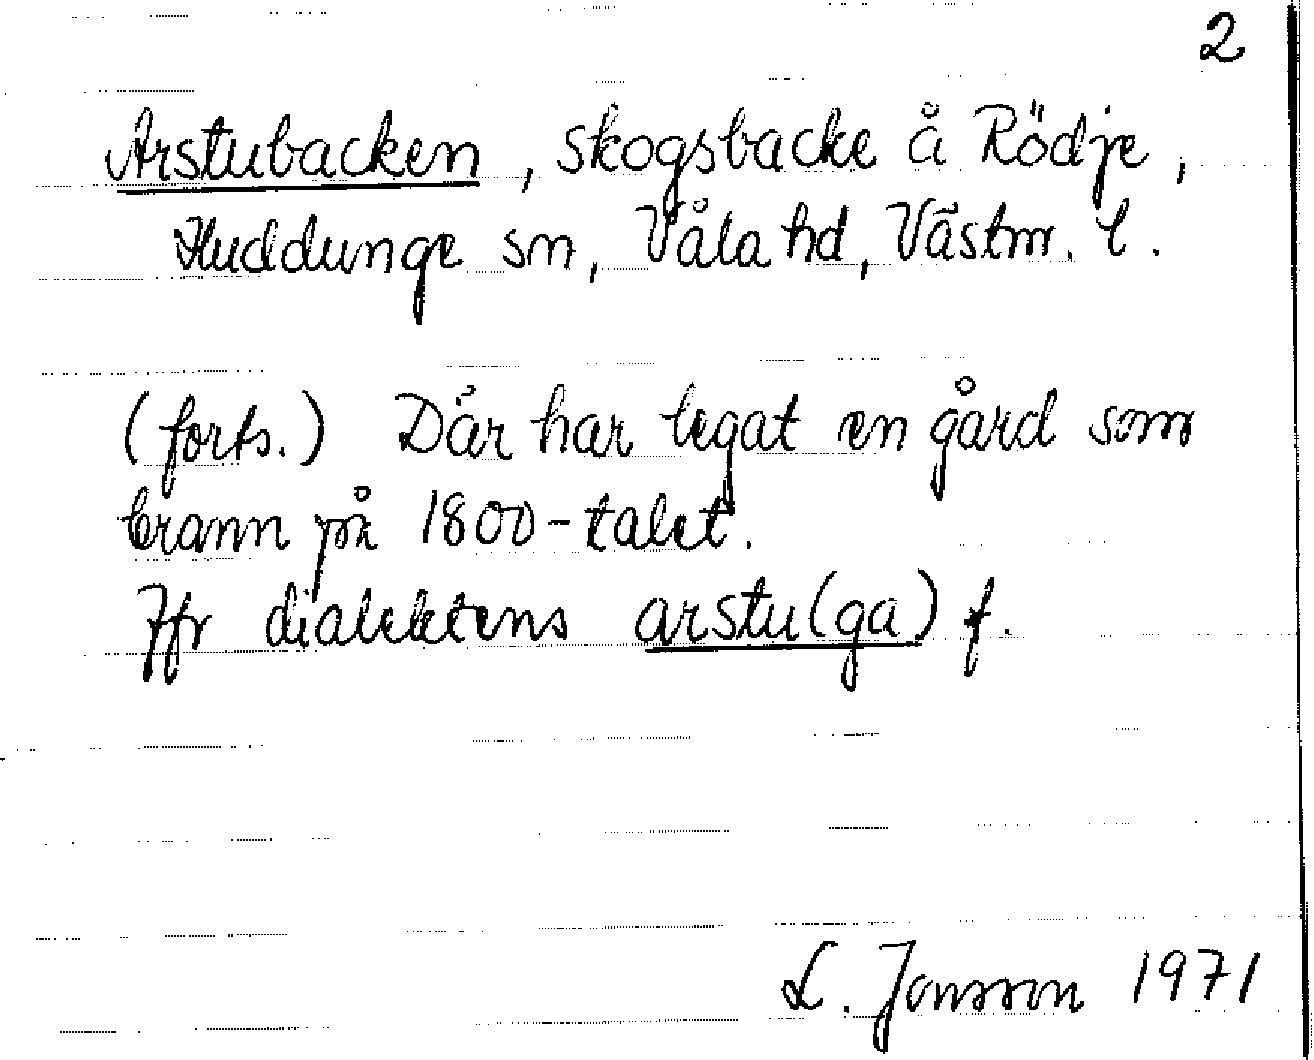 2
Arstubacken, skogsbacke å Rödje,
Huddunge sn, Våla hd, Västm. l.
(forts.) Där har legat en gård som
brann på 1800-talet.
Jfr dialektens arstu(ga) f.
L. Jonsson 1971